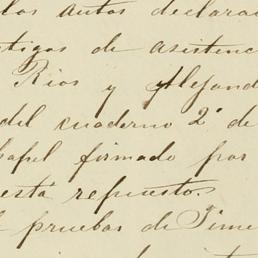 los autos declara
tigos de asistenc
Rios y Alejand
del cuaderno 2º de
papel firmado por
está repuesto.
pruebas de Time